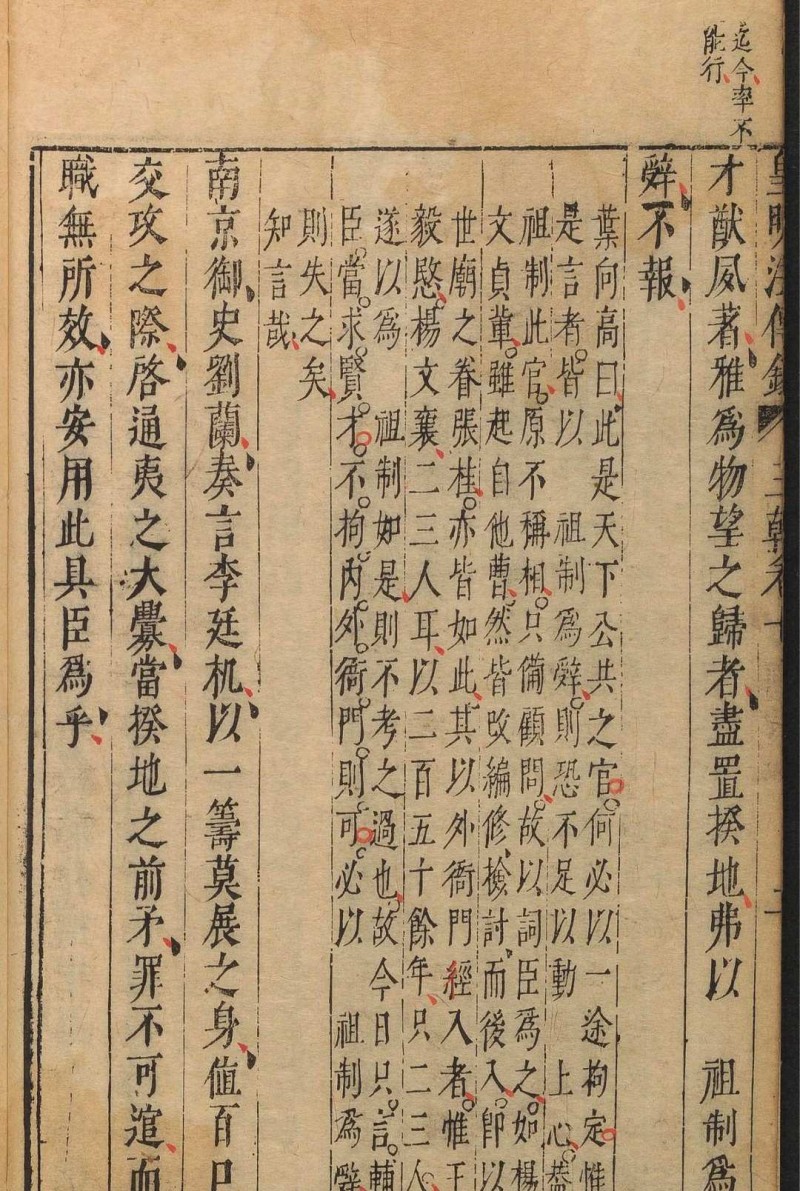 迄今率不
能行
皇明法傳錄 三朝卷十
才猷夙著雅爲物望之歸者盡置揆地弗以 祖制爲
辭不報
葉向高曰此是天下公共之官何必以一途拘定惟
是言者皆以 祖制爲辭則恐不足以動 上心蓋
祖制此官原不稱相只備顧問故以詞臣爲之如楊
文貞軰雖起自他曹然皆改編修檢討而後入卽以
世廟之眷張桂亦皆如此其以外衙門經入者惟王
毅愍楊文襄二三人耳以二百五十餘年只二三人
遂以爲 祖制如是則不考之過也故今日只言輔
臣當求賢才不拘內外衙門則可必以 祖制爲辭
則失之矣
知言哉
南京御史劉蘭奏言李廷机以一籌莫展之身值百口
交攻之際啓通夷之大釁當揆地之前矛罪不可逭而
職無所效亦安用此具臣爲乎